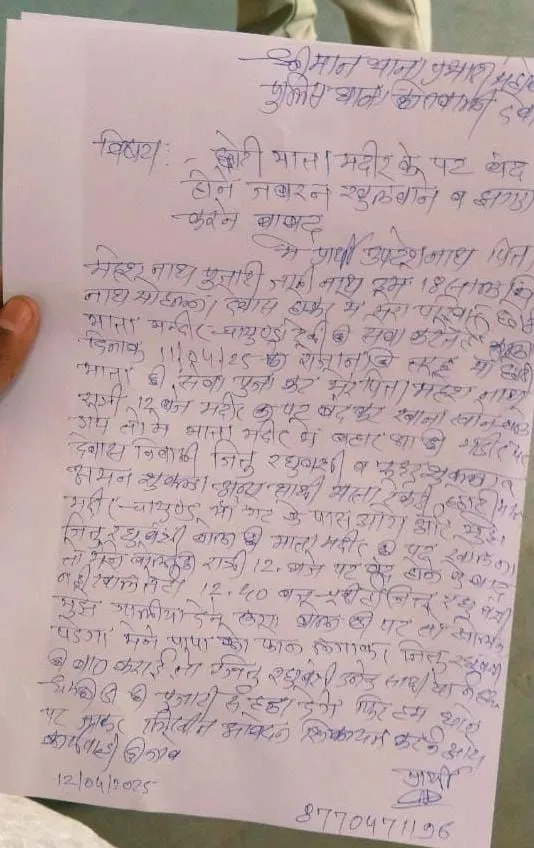 श्रीमान थाना प्रभारी महो
पुलिस थाना कोतवाली देव
विषय:- छोटी माता मंदीर के पट बंद
होने जबरन खुलवाने व झगडा
करने बाबद
में प्रार्थी उपदेशनाथ पिता
महेश नाथ पुजारी जाती नाथ उम्र 18 साल नि
नाथ मोहल्ला देवास हाल में मेरा परिवार छोटी
माता मन्दीर चामुण्डा टेकरी की सेवा करते
दिनांक 11/04/25 को रोजाना की तरह माँ छोटी
माता की सेवा पुजा कर मेरे पिता महेश नाथ
रात्री 12 बजे मंदीर के पट बंद कर खाना खाने
तो में माता मंदीर में बहार था की मंदीर पर
देवास निवासी जितु रघुवंशी व शुक्ला व
अमन शुक्ला अन्य साथी माता टेकरी छोटी माता
मंदीर चामुण्डा के पट के पास आये और मुझे
जितु रघुवंशी बोला की माता मंदीर के पट खोल
तो मेने बोला की रात्री 12 बजे पट बंद होने के बाद
नही खोलते 12.40 बजे जितु रघुवंशी
मुझे गालीया देने लगा बोला की पट तो खोलना
पडेगा मेने पापा को फोन लगाकर जितु रघुवंशी
की बात कराई तो जितु रघुवंशी उनके साथी
धमकी दी की पुजारी से हटा देंगे फिर हम थाने
पर आकर लिखीत आवेदन शिकायत करने आये
कार्यवाही की जावे
12/04/2025
प्रार्थी
8770471196